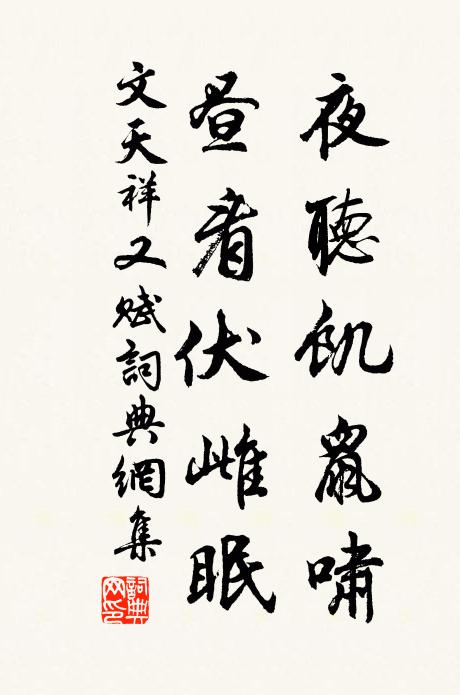 夜聽飢鼠嘯
昼看伏雌眠
文天祥又赋詞典網集
詞典
网印